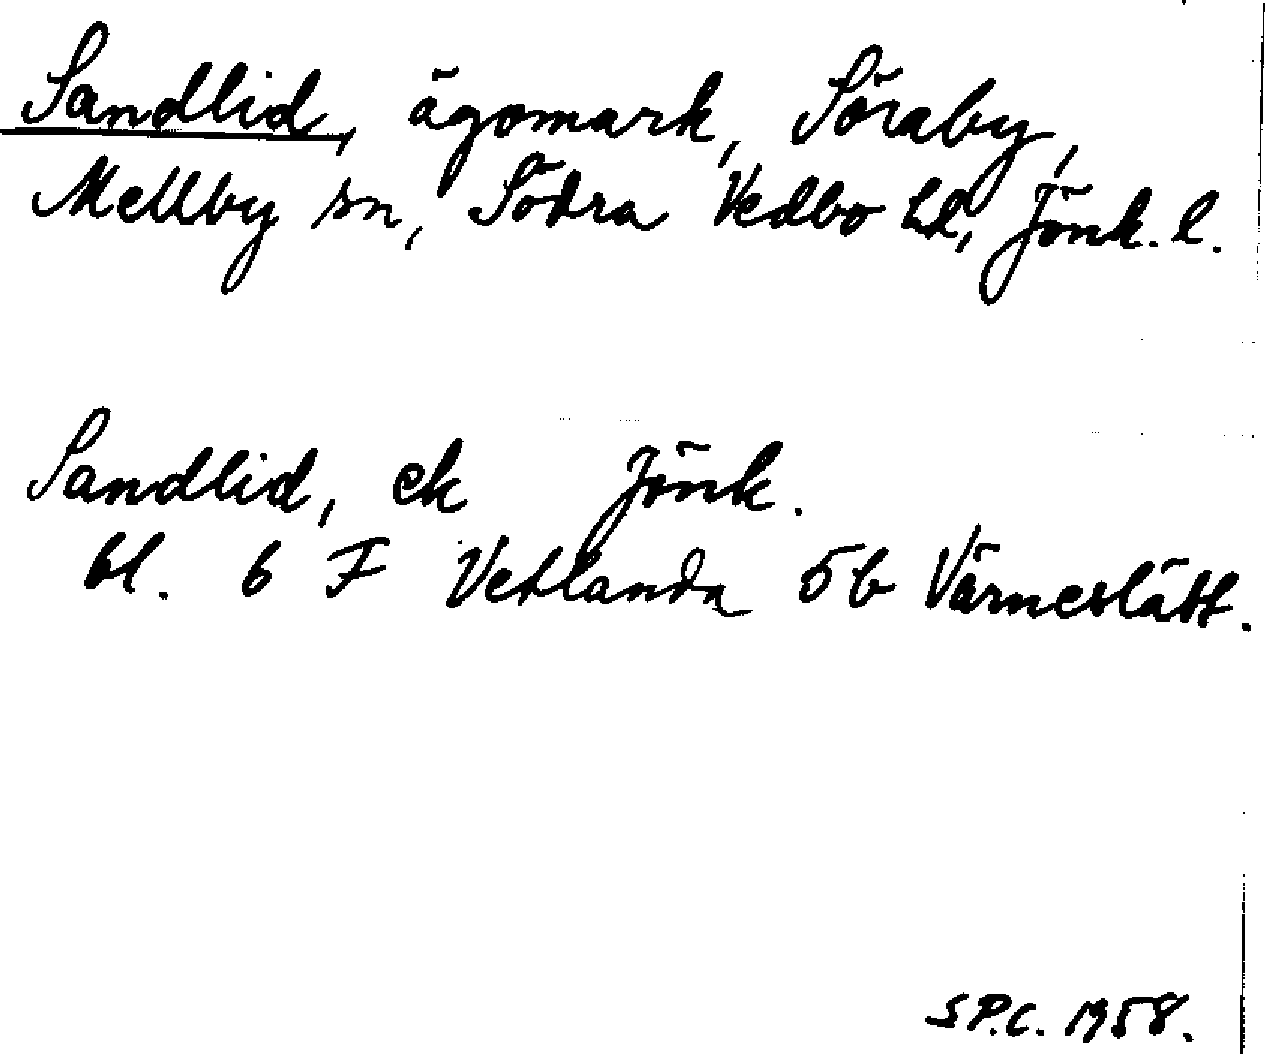 Sandlid, ägomark, Söraby,
Mellby sn, Södra Vedbo hd, Jönk. l.
Sandlid, ek Jönk.
bl. 6 F Vetlanda 5b Värneslätt.
S P.C. 1958.